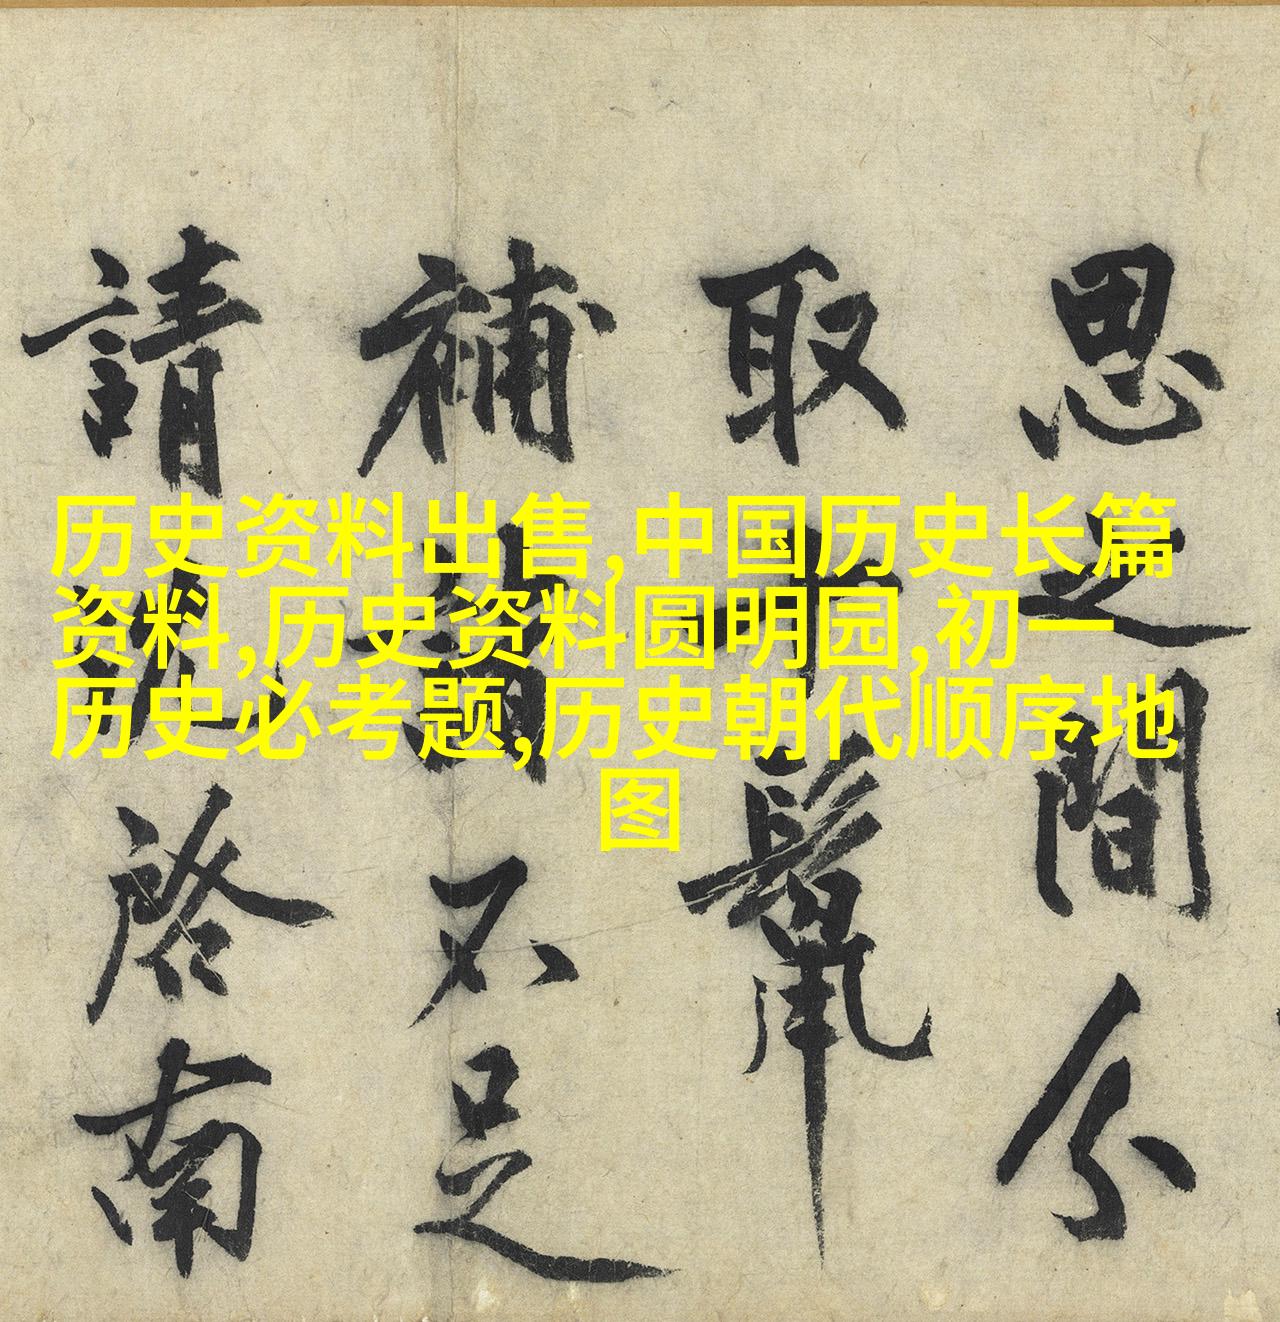 思之間分
取十鬣
補讀不足
請啓南
历史资料出售,中国历史长篇
资料,历史资料圆明园,初一
历史必考题,历史朝代顺序地
图